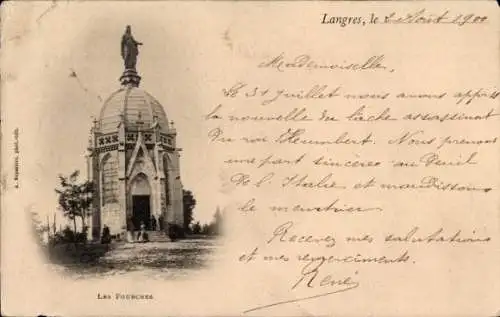 Langres, le 2 Août 1900
Mademoiselle,
Le 31 Juillet nous avons appris
la nouvelle du lâche assassinat
du roi Heumbert. Nous prenons
une part sincère au Deuil
de l'Italie et maudissons
le meurtrier
Recevez mes salutations
et mes remerciments.
René
LES FOURCHES